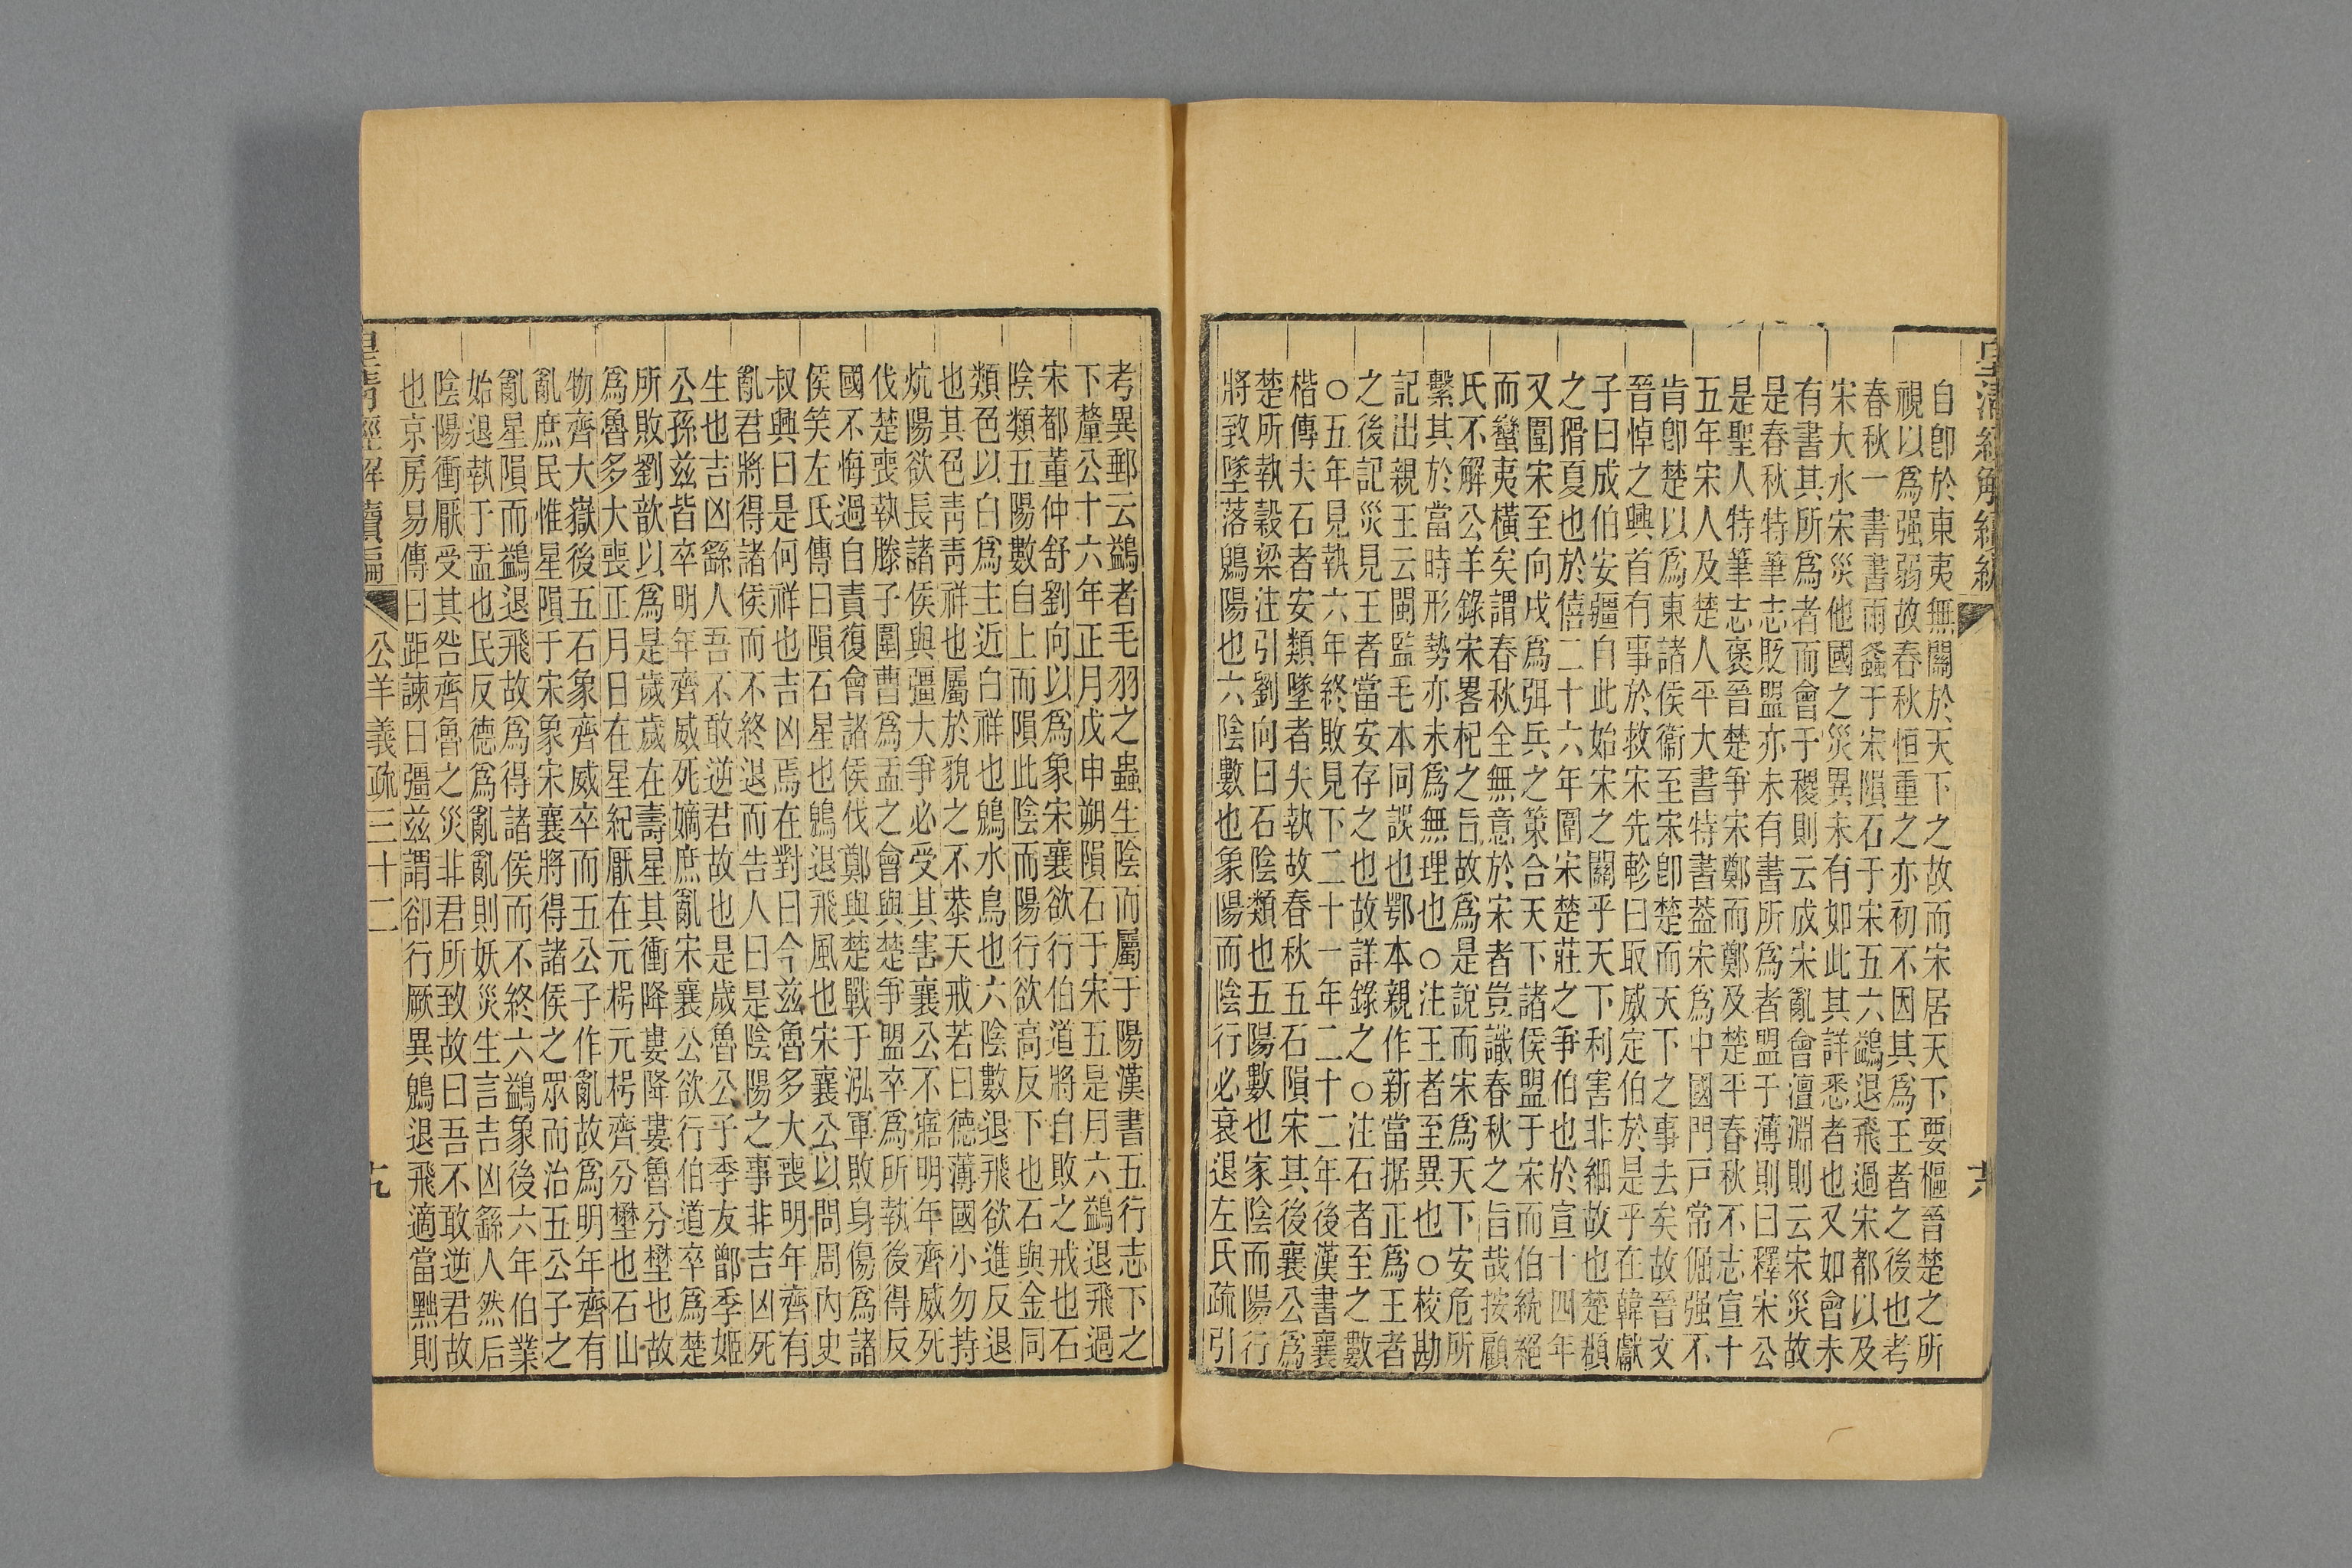 皇清經解續編
自卽於東夷無關於天下之故而宋居天下要樞晉楚之所
視以爲强弱故春秋恒重之亦初不因其爲王者之後也考
春秋一書書雨螽于宋隕石于宋五六鷁退飛過宋都以及
宋大水宋災他國之災異未有如此其詳悉者也又如會未
有書其所爲者而會于稷則云成宋亂會澶淵則云宋災故
是春秋特筆志貶盟亦未有書所爲者盟于薄則曰釋宋公
是聖人特筆志褒晉楚爭宋鄭而鄭及楚平春秋不志宣十
五年宋人及楚人平大書特書葢宋爲中國門戸常倔强不
肯卽楚以爲東諸侯衞至宋卽楚而天下之事去矣故晉文
晉悼之興首有事於救宋先軫曰取威定伯於是乎在韓獻
子曰成伯安疆自此始宋之關乎天下利害非細故也楚頵
之猾夏也於僖二十六年圍宋楚莊之爭伯也於宣十四年
又圍宋至向戌爲弭兵之策合天下諸侯盟于宋而伯統絕
而蠻夷橫矣謂春秋全無意於宋者豈識春秋之旨哉按顧
氏不解公羊錄宋畧杞之旨故爲是說而宋爲天下安危所
繫其於當時形勢亦未爲無理也○注王者至異也○校勘
記出親王云閩監毛本同誤也鄂本親作新當据正爲王者
之後記災見王者當安存之也故詳錄之○注石者至之數
○五年見執六年終敗見下二十一年二十二年後漢書襄
楷傳夫石者安類墜者失執故春秋五石隕宋其後襄公爲
楚所執穀梁注引劉向曰石陰類也五陽數也家陰而陽行
將致墜落鶂陽也六陰數也象陽而陰行必衰退左氏疏引
考異郵云鷁者毛羽之蟲生陰而屬于陽漢書五行志下之
下釐公十六年正月戊申朔隕石于宋五是月六鷁退飛過
宋都董仲舒劉向以爲象宋襄欲行伯道將自敗之戒也石
陰類五陽數自上而隕此陰而陽行欲高反下也石與金同
類色以白爲主近白祥也鶂水鳥也六陰數退飛欲進反退
也其色青青祥也屬於貌之不恭天戒若曰德薄國小勿持
炕陽欲長諸侯與彊大爭必受其害襄公不寤明年齊威死
伐楚喪執滕子圍曹爲盂之會與楚爭盟卒爲所執後得反
國不悔過自責復會諸侯伐鄭與楚戰于泓軍敗身傷爲諸
侯笑左氏傳曰隕石星也鶂退飛風也宋襄公以問周內史
叔興曰是何祥也吉凶焉在對曰今兹魯多大喪明年齊有
亂君將得諸侯而不終退而告人曰是陰陽之事非吉凶死
生也吉凶繇人吾不敢逆君故也是歲魯公子季友鄫季姬
公孫兹皆卒明年齊威死嫡庶亂宋襄公欲行伯道卒爲楚
所敗劉歆以爲是歲歲在壽星其衝降婁降婁魯分壄也故
爲魯多大喪正月日在星紀厭在元枵元枵齊分壄也石山
物齊大嶽後五石象齊威卒而五公子作亂故爲明年齊有
亂庶民惟星隕于宋象宋襄將得諸侯之眾而治五公子之
亂星隕而鷁退飛故爲得諸侯而不終六鷁象後六年伯業
始退執于盂也民反德爲亂亂則妖災生言吉凶繇人然后
陰陽衝厭受其咎齊魯之災非君所致故曰吾不敢逆君故
也京房易傳曰距諫自彊兹謂卻行厥異鶂退飛適當黜則
皇清經解續編 公羊義疏三十二